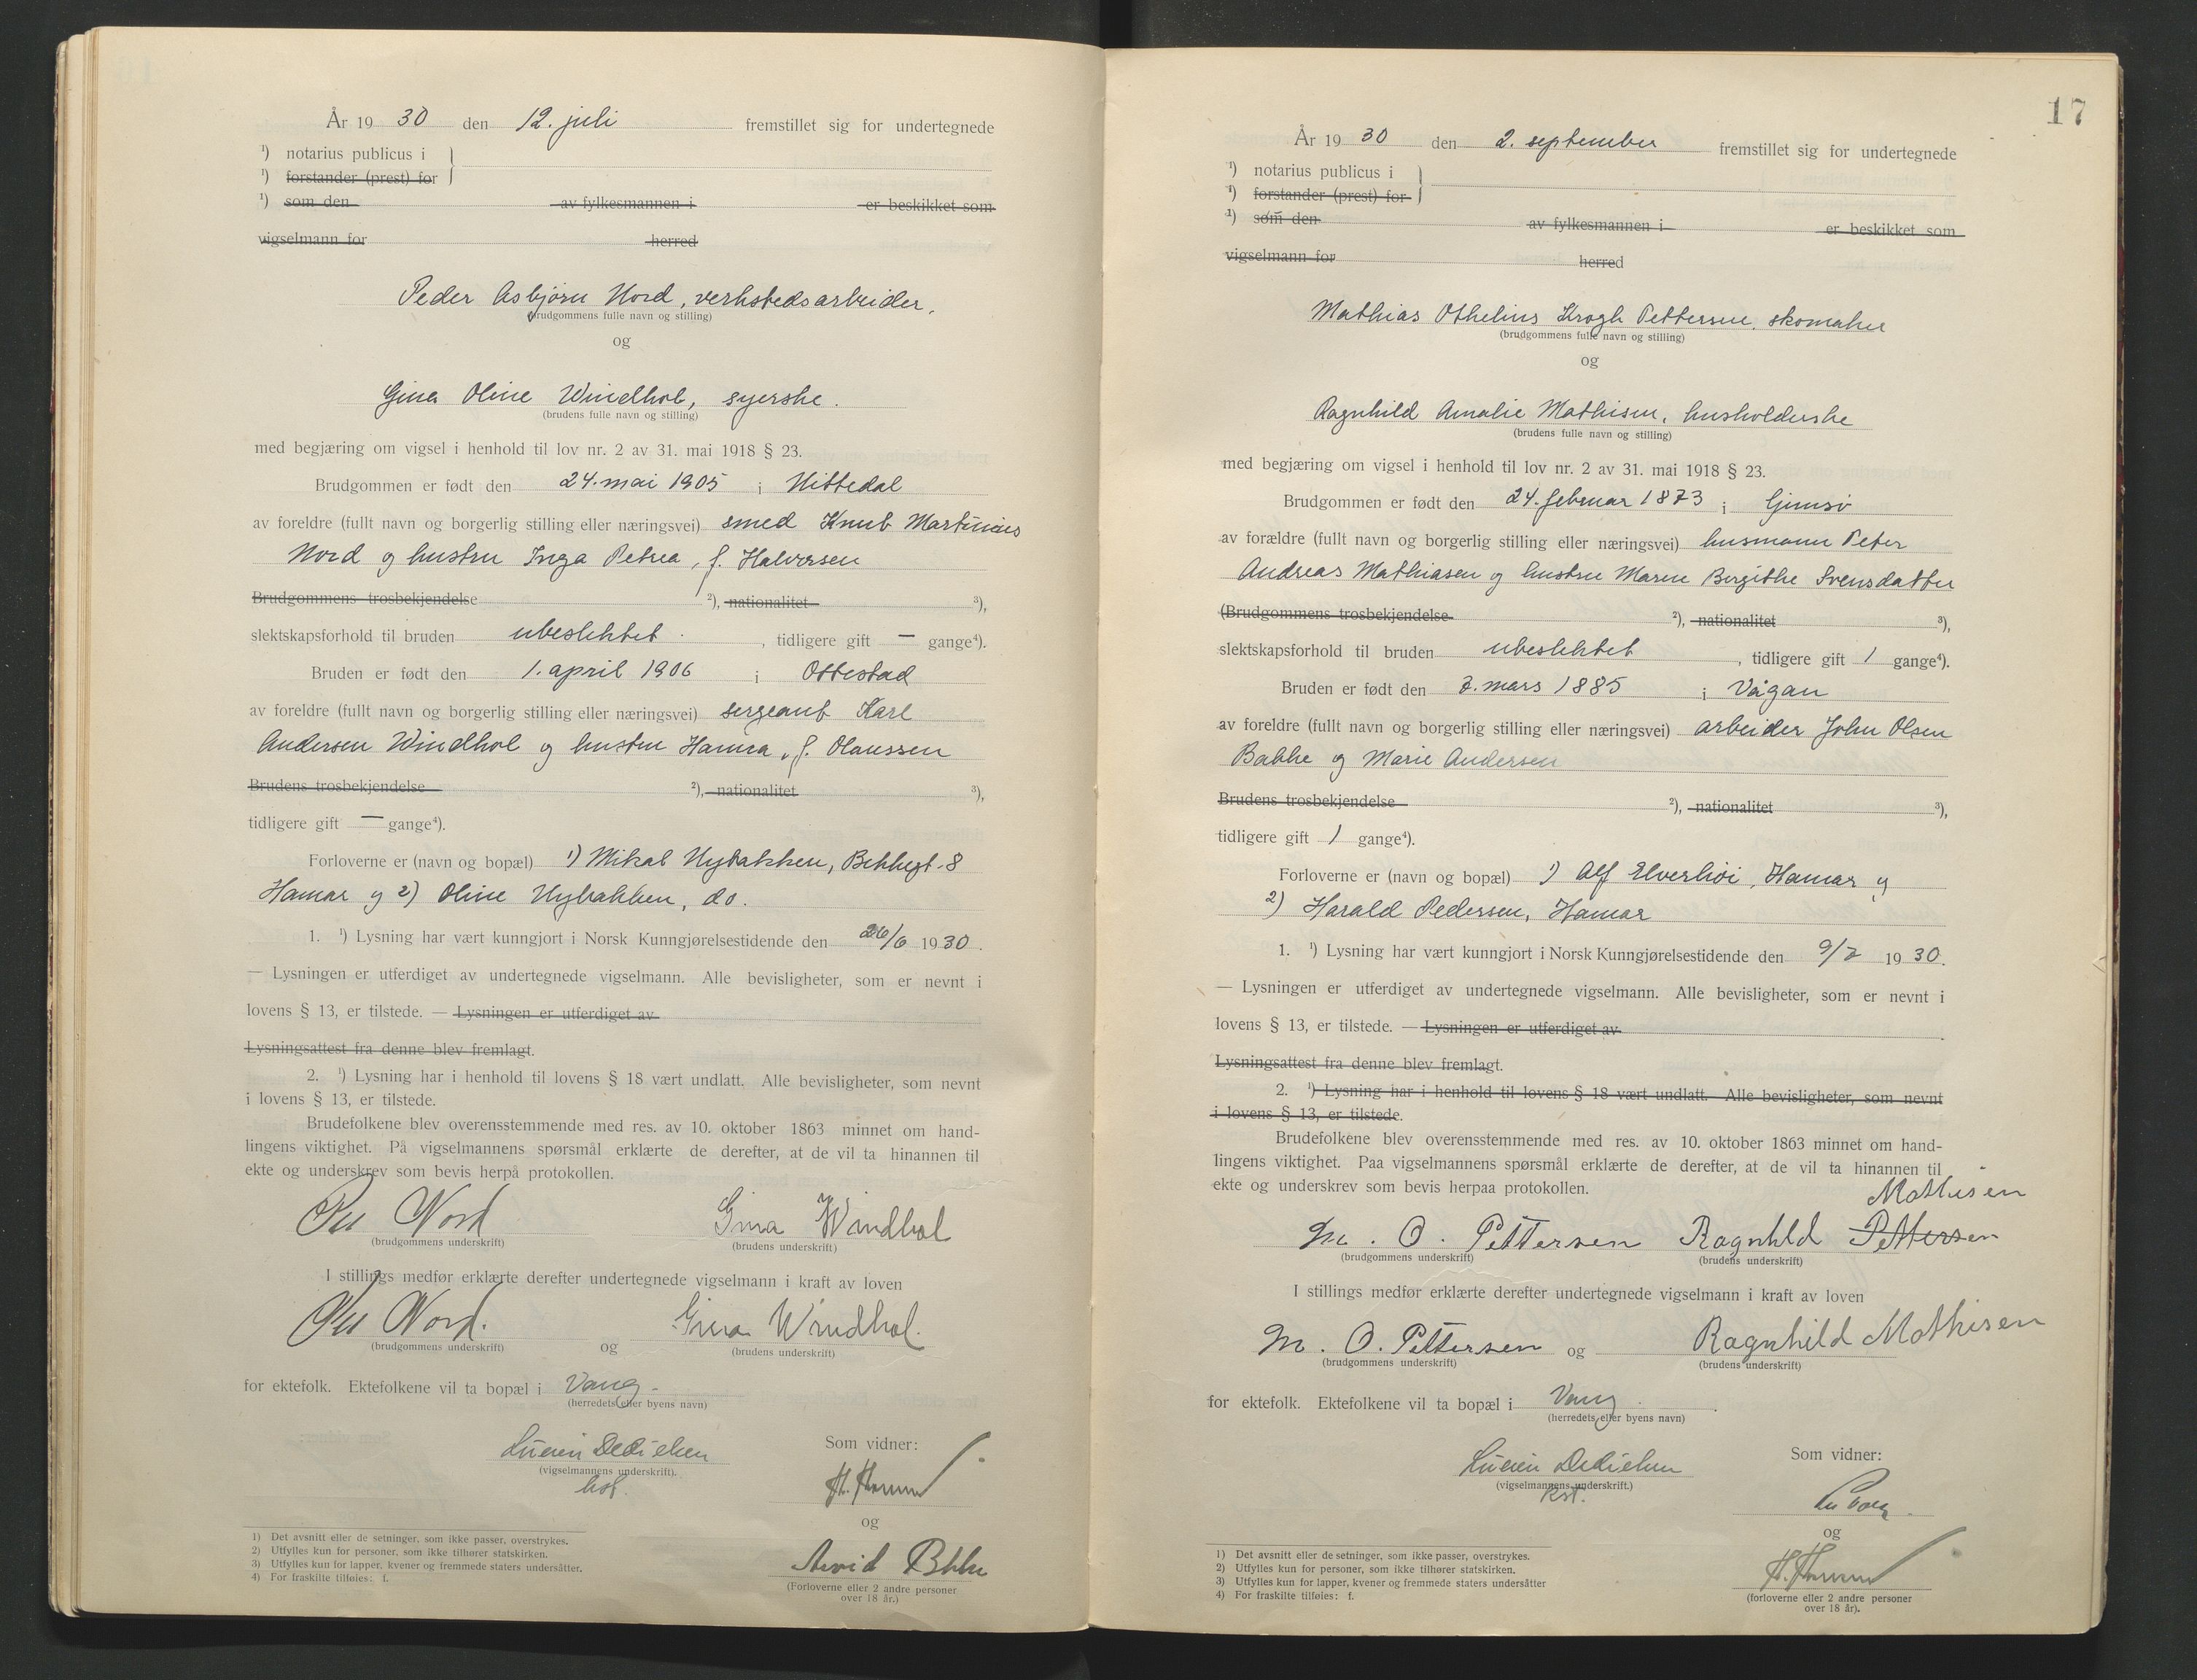 År 19 30 den 12. juli fremstillet sig for undertegnede
¹) notarius publicus i
¹) forstander (prest) for
¹) som den av fylkesmannen i er beskikket som
vigselmann for herred
Peder Asbjørn Nord, verkstedsarbeider.
(brudgommens fulle navn og stilling)
og
Gina Oline Windhol, syerske.
(brudens fulle navn og stilling)
med begjæring om vigsel i henhold til lov nr. 2 av 31. mai 1918 § 23.
Brudgommen er født den 24. mai 1905 i Nittedal
av foreldre (fullt navn og borgerlig stilling eller næringsvei) smed Knut Martinius
Nord og hustru Inga Petrea, f. Halvorsen
Brudgommens trosbekjendelse ²), nationalitet ³),
slektskapsforhold til bruden ubeslektet. , tidligere gift — gange⁴).
Bruden er født den 1. april 1906 i Ottestad
av foreldre (fullt navn og borgerlig stilling eller næringsvei) sergeant Karl
Andersen Windhol og hustru Hanna, f. Olaussen
Brudens trosbekjendelse ²), nationalitet ³),
tidligere gift — gange⁴).
Forloverne er (navn og bopæl) 1) Mikal Nybakken, Bekkegt. 8
Hamar og 2) Oline Nybakken, do.
1. ¹) Lysning har vært kunngjort i Norsk Kunngjørelsestidende den 26/6 1930.
— Lysningen er utferdiget av undertegnede vigselmann. Alle bevisligheter, som er nevnt i
lovens § 13, er tilstede. — Lysningen er utferdiget av
Lysningsattest fra denne blev fremlagt.
2. ¹) Lysning har i henhold til lovens § 18 vært undlatt. Alle bevisligheter, som nevnt
i lovens § 13, er tilstede.
Brudefolkene blev overensstemmende med res. av 10. oktober 1863 minnet om hand-
lingens viktighet. På vigselmannens spørsmål erklærte de derefter, at de vil ta hinannen til
ekte og underskrev som bevis herpå protokollen.
Per Nord Gina Windhol
(brudgommens underskrift) (brudens underskrift)
I stillings medfør erklærte derefter undertegnede vigselmann i kraft av loven
Per Nord. og Gina Windhol.
(brudgommens underskrift) (brudens underskrift)
for ektefolk. Ektefolkene vil ta bopæl i Vang.
(herredets eller byens navn)
Som vidner:
(vigselmannens underskrift).
og
Arvid
(Forloverne eller 2 andre personer
over 18 år.)
1) Det avsnitt eller de setninger, som ikke passer, overstrykes.
2) Utfylles kun for personer, som ikke tilhører statskirken.
3) Utfylles kun for lapper, kvener og fremmede staters undersåtter.
4) For fraskilte tilføies: f.
17
År 19 30 den 2. september fremstillet sig for undertegnede
¹) notarius publicus i
¹) forstander (prest) for
¹) som den av fylkesmannen i er beskikket som
vigselmann for herred
Mathias Othelius Krogh Pettersen, skomaker
(brudgommens fulle navn og stilling)
og
Ragnhild Amalie Mathisen, husholderske
(brudens fulle navn og stilling)
med begjæring om vigsel i henhold til lov nr. 2 av 31. mai 1918 § 23.
Brudgommen er født den 24. februar 1873 i Gimsø
av forældre (fullt navn og borgerlig stilling eller næringsvei) husmann Peter
Andreas Mathiasen og hustru Maren Bergithe Svensdatter
(Brudgommens trosbekjendelse ²), nationalitet ³),
slektskapsforhold til bruden ubeslektet , tidligere gift 1 gange⁴).
Bruden er født den 7. mars 1885 i Vågan
av foreldre (fullt navn og borgerlig stilling eller næringsvei) arbeider John Olsen
Bakke og Marie Andersen
Brudens trosbekjendelse ²), nationalitet ³),
tidligere gift 1 gange⁴).
Forloverne er (navn og bopæl) 1) Alf Elverhøi, Hamar og
2) Harald Pedersen, Hamar
1. ¹) Lysning har vært kunngjort i Norsk Kunngjørelsestidende den 9/7 1930.
— Lysningen er utferdiget av undertegnede vigselmann. Alle bevisligheter, som er nevnt i
lovens § 13, er tilstede. — Lysningen er utferdiget av
Lysningsattest fra denne blev fremlagt.
2. ¹) Lysning har i henhold til lovens § 18 vært undlatt. Alle bevisligheter, som nevnt
i lovens § 13, er tilstede.
Brudefolkene blev overensstemmende med res. av 10. oktober 1863 minnet om hand-
lingens viktighet. Paa vigselmannens spørsmål erklærte de derefter, at de vil ta hinannen til
ekte og underskrev som bevis herpaa protokollen.
Mathisen
M. O. Pettersen Ragnhld Pettersen
(brudgommens underskrift) (brudens underskrift)
I stillings medfør erklærte derefter undertegnede vigselmann i kraft av loven
M. O. Pettersen og Ragnhild Mathisen
(brudgommens underskrift) (brudens underskrift)
for ektefolk. Ektefolkene vil ta bopæl i Vang.
(herredets eller byens navn)
Som vidner:
(vigselmannens underskrift.)
kst.
og
(forloverne eller 2 andre personer
over 18 år).
1) Det avsnitt eller de setninger, som ikke passer, overstrykes.
2) Utfylles kun for personer, som ikke tilhører statskirken.
3) Utfylles kun for lapper, kvener og fremmede staters undersåtter
4) For fraskilte tilføies: f.